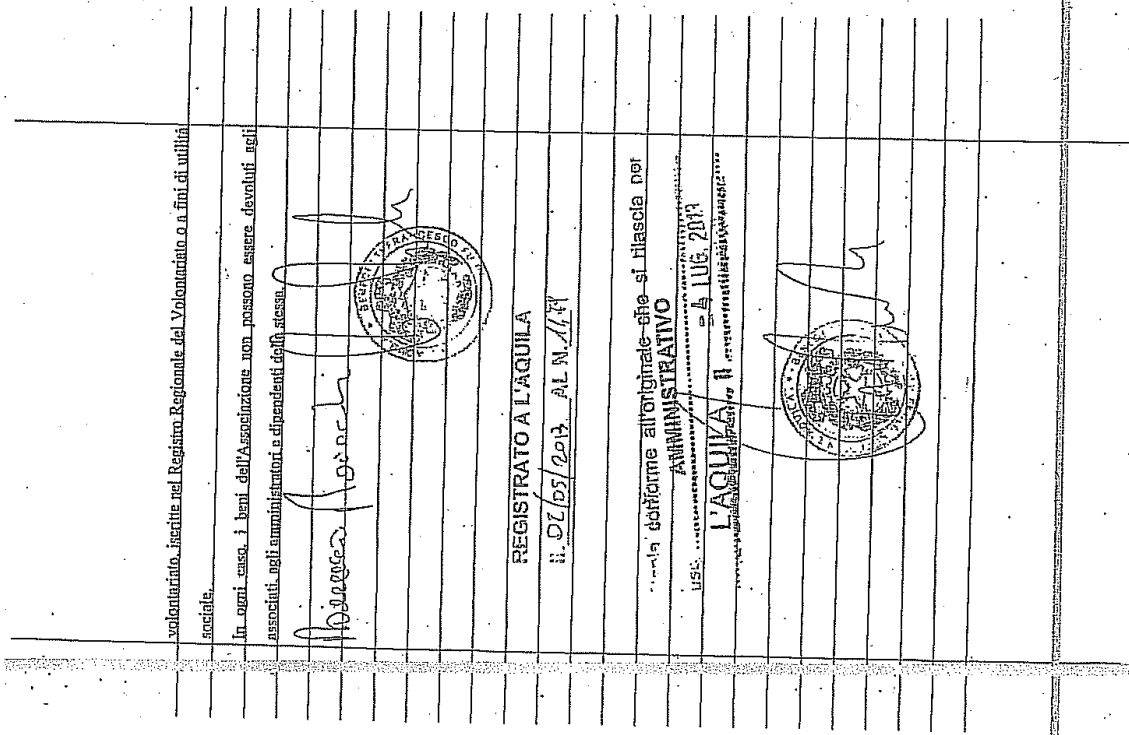 volontariato, iscritte nel Registro Regionale del Volontariato o a fini di utilità
sociale.
In ogni caso, i beni dell'Associazione non possono essere devoluti agli
associati, agli amministratori e dipendenti della stessa
FRANCESCO
REGISTRATO A L'AQUILA
IL 02/05/2013 AL N.
conforme all'originale che si rilascia per
AMMINISTRATIVO
uso
L'AQUILA, lì
- 4 LUG. 2013